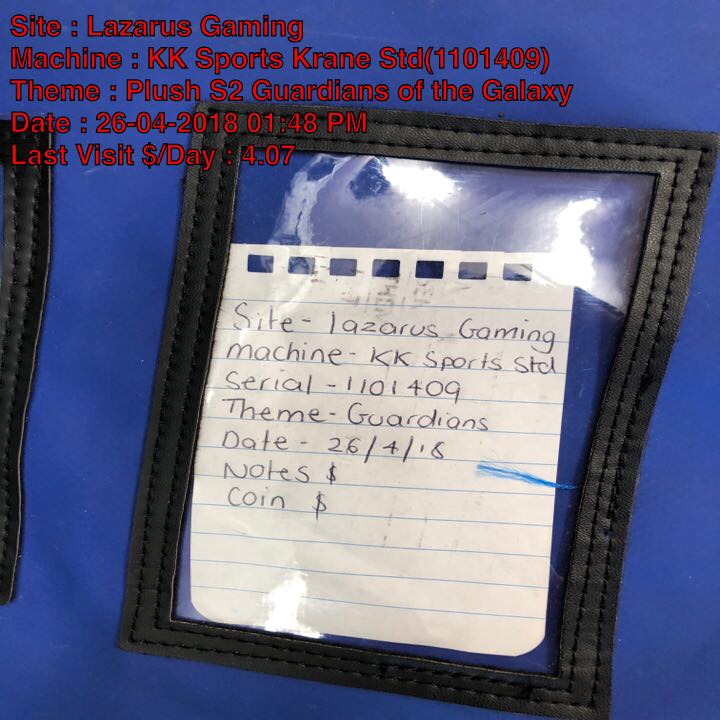 Site : Lazarus Gaming
Machine : KK Sports Krane Std(1101409)
Theme : Plush S2 Guardians of the Galaxy
Date : 26-04-2018 01:48 PM
Last Visit $/Day : 4.07
Site - lazarus Gaming
machine - KK Sports Std
Serial - 1101409
Theme - Guardians
Date - 26/4/18
Notes $
Coin $